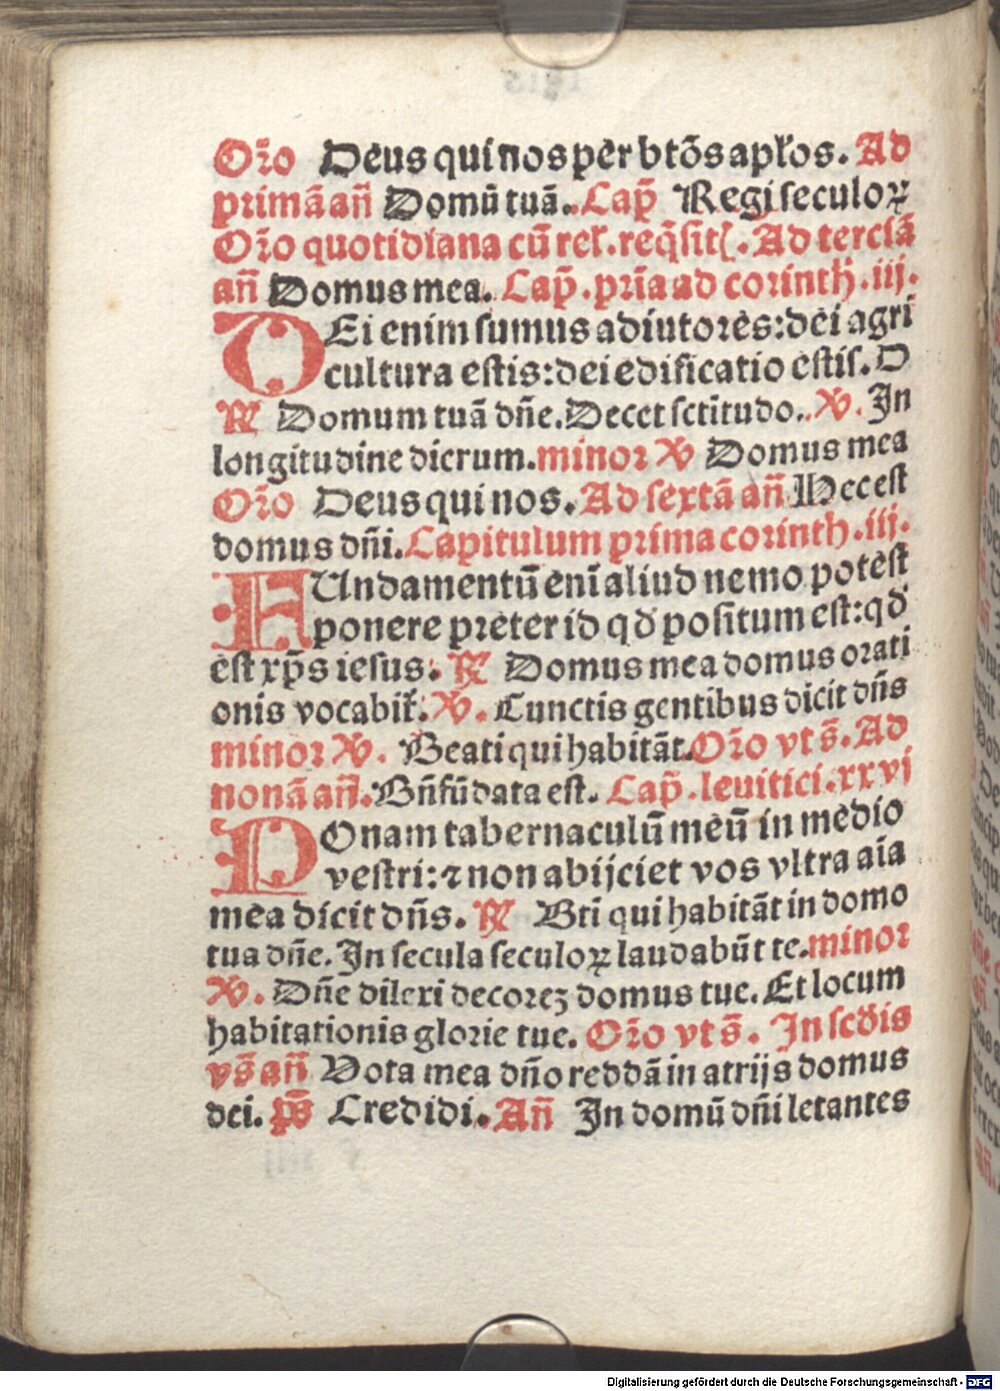 Oro̅ Deus qui nos per bto̅s apłos. Ad
prima̅ an̅ Domu̅ tua̅. Cap̅ Regi seculoꝝ
Oro̅ quotidiana cu̅ reł. req̅sit̾. Ad tercia̅
an̅ Domus mea. Cap̅. pri̅a ad corinth̅. iij.
DEi enim sumus adiutores: dei agri
cultura estis: dei edificatio estis. D
℟ Domum tua̅ dn̅e. Decet sctitudo. ℣. In
longitudine dierum. minor ℣ Domus mea
Oro̅ Deus qui nos. Ad sexta̅ an̅ Hec est
domus dn̅i. Capitulum prima corinth. iij.
FUndamentu̅ eni̅ aliud nemo potest
ponere preter id qđ positum est: qđ
est xp̅s iesus. ℟ Domus mea domus orati
onis vocabit̾. ℣. Cunctis gentibus dicit dn̅s
minor ℣. Beati qui habita̅t. Oro̅ vt s̅. Ad
nona̅ an̅. Bn̅ fu̅data est. Cap̅. leuitici. xxvi
POnam tabernaculu̅ meu̅ in medio
vestri: ⁊ non abijciet vos vltra ai̅a
mea dicit dn̅s. ℟ Bti̅ qui habita̅t in domo
tua dn̅e. In secula seculoꝝ laudabu̅t te. minor
℣. Dn̅e dilexi decoreꝫ domus tue. Et locum
habitationis glorie tue. Oro̅ vt s̅. In scđis
vs̅ an̅ Vota mea dn̅o redda̅ in atrijs domus
dei. ps̅ Credidi. An̅ In domu̅ dn̅i letantes
Digitalisierung gefördert durch die Deutsche Forschungsgemeinschaft - DFG